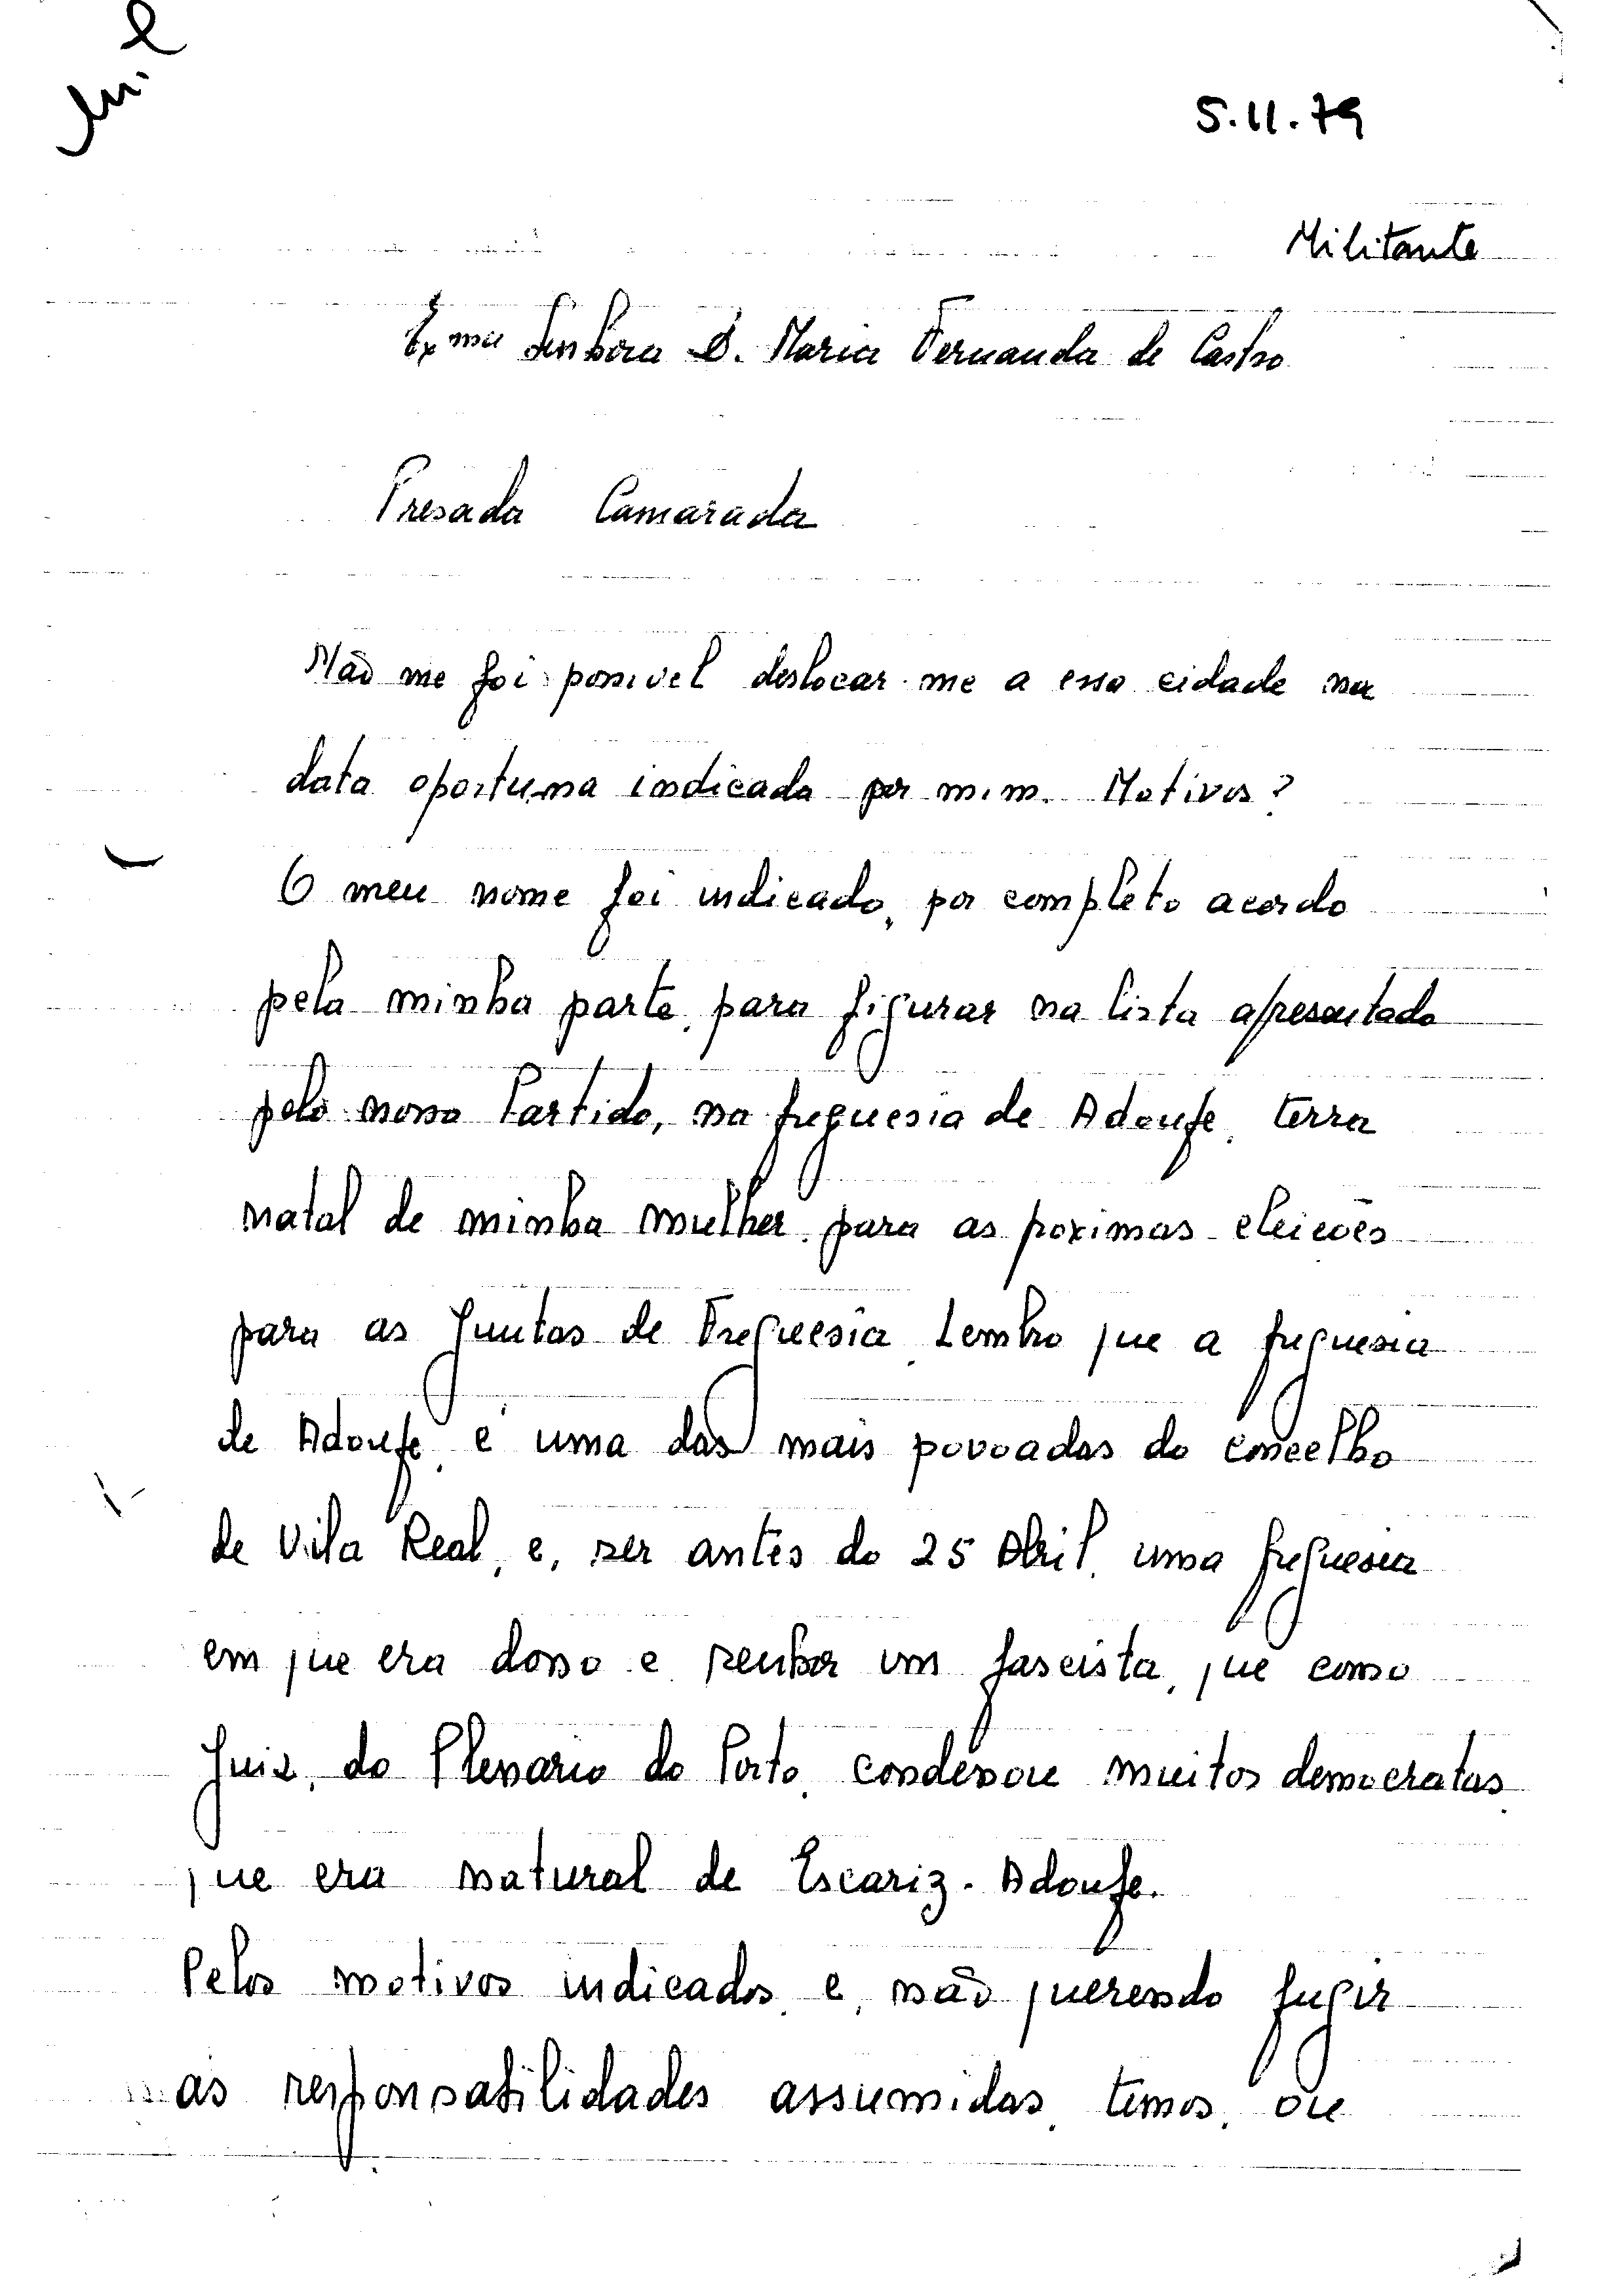 5.11.79
Militante
Exma Senhora D. Maria Fernanda de Castro
Presada Camarada
Não me foi possivel deslocar-me a essa cidade na
data oportuna indicada por mim. Motivos?
O meu nome foi indicado, por completo acordo
pela minha parte, para figurar na lista apresentada
pelo nosso Partido, na freguesia de Adoufe, terra
natal de minha mulher, para as proximas eleicões
para as Juntas de Freguesia. Lembro que a freguesia
de Adoufe, é uma das mais povoadas do concelho
de Vila Real, e, ser antes do 25 Abril, uma freguesia
em que era dono e senhor um fascista, que como
Juiz, do Plenario do Porto, condenou muitos democratas,
que era natural de Escariz - Adoufe.
Pelos motivos indicados, e, não querendo fugir
ás responsabilidades assumidas, temos, ou